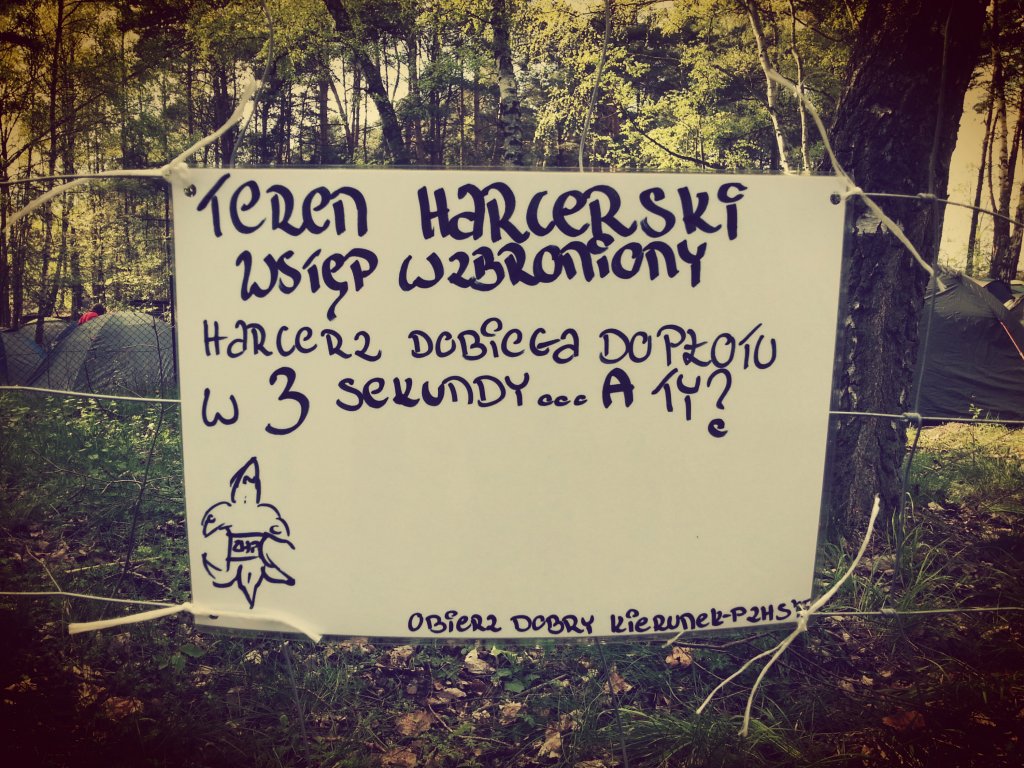 TEREN HARCERSKI
WSTĘP WZBRONIONY
HARCERZ DOBIEGA DO PŁOTU
W 3 SEKUNDY... A TY?
ZHP
OBIERZ DOBRY KIERUNEK-PZHS